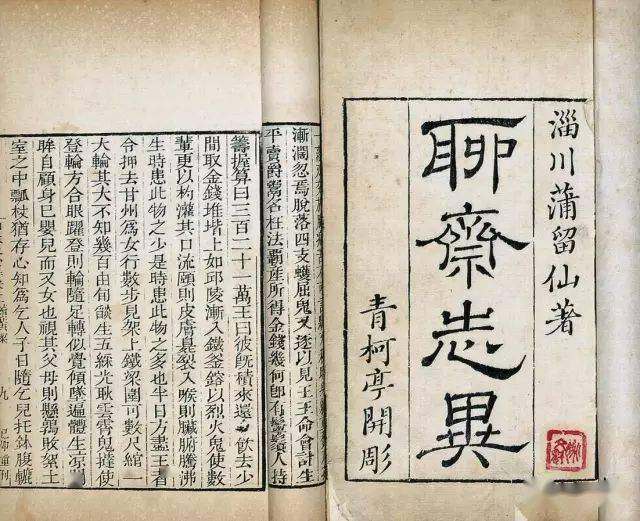 淄川蒲留仙著
聊齋志異
青柯亭開彫
漸濶忽焉脫落四支蠖屈鬼又逐以見王王命會計生
平賣爵鬻名枉法霸産所得金錢幾何卽有鬚人持
籌握算曰三百二十一萬王曰彼旣積來還飲去少
間取金錢堆堦上如邱陵漸入鐵釜鎔以烈火鬼使數
輩更以杓灌其口流頤則皮膚臭裂入喉則臟腑騰沸
生時患此物之少是時患此物之多也半日方盡王者
令押去甘州爲女行數步見架上鐵梁圍可數尺綰一
大輪其大不知幾百由旬燄生五綵光耿雲霄鬼撻使
登輪方合眼躍登則輪隨足轉似覺傾墜遍體生凉
眸自顧身已嬰兒而又女也視其父母則懸鶉敗絮土
室之中瓢杖猶存心知爲乞人子日隨乞兒托鉢腹轆
九